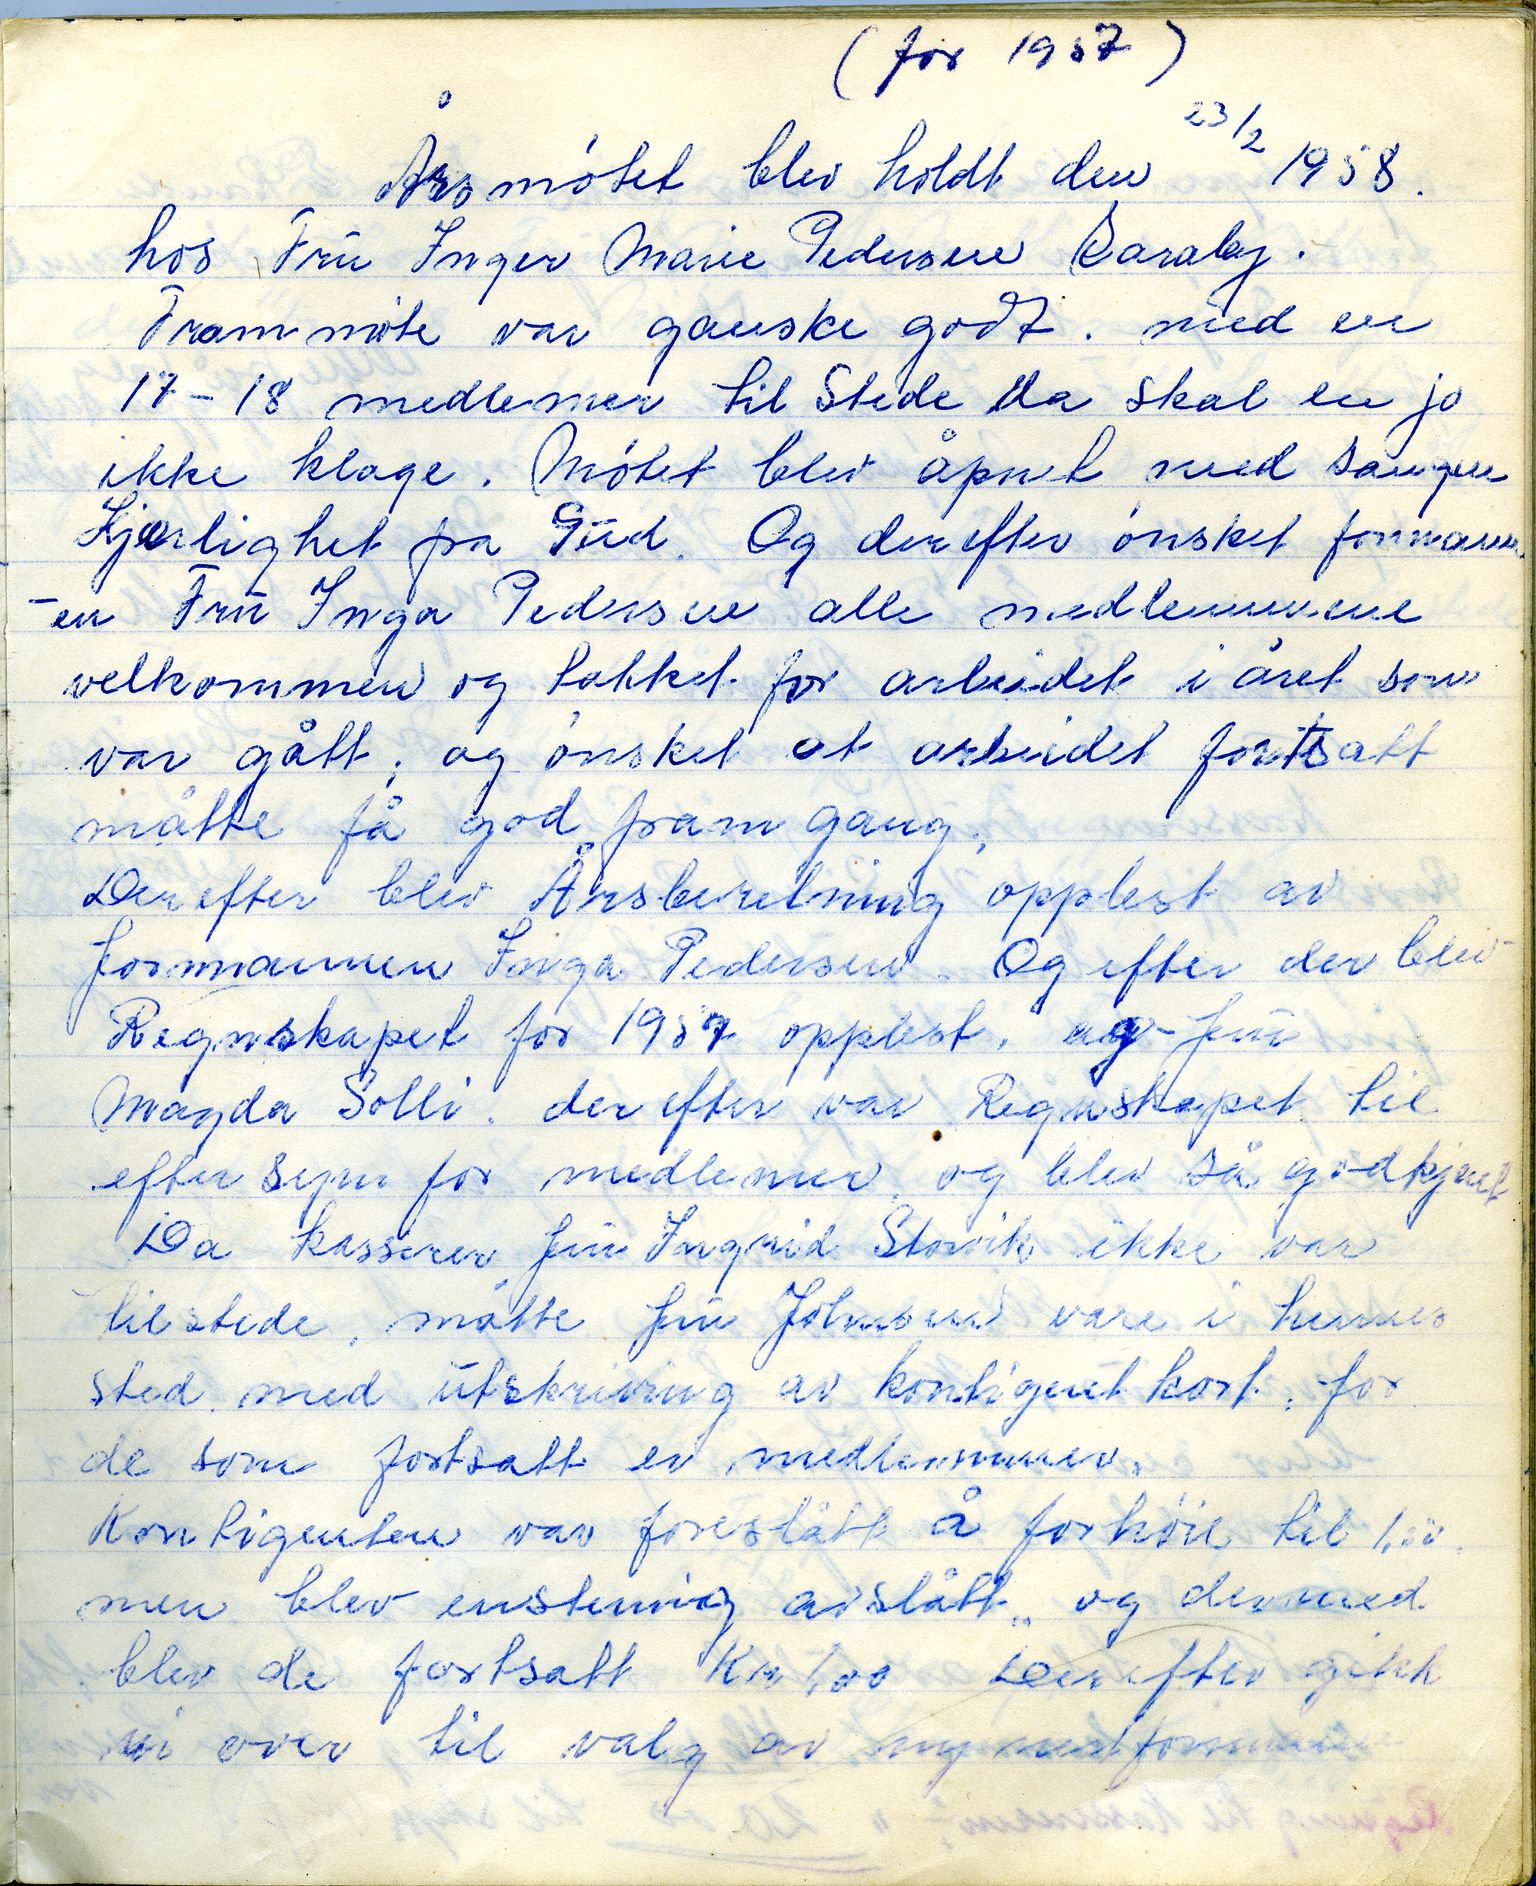 (for 1957)
Årsmötet blev holdt den 23/2 1958.
hos Frū Inger Marie Pedersen
Frammöte var ganske godt. med en
17-18 medlemer til Stede Da skal en jo
ikke klage. Mötet blev åpnet med sangen
Kjærlighet fra Gūd. Og derefter önsket formann
-en Frū Inga Pedersen alle medlemmene
velkommen og takket for arbeidet i året som
var gått, og önsket at arbeidet fortsatt
måtte få god framgang.
Derefter blev Årsberetning opplest av
formannen Inga Pedersen. Og efter der blev
Regnskapet for 1957 opplest. frū
Magda Solli. derefter var Regnskapet til
eftersyn for medlemer, og blev så godkjent
Da kasserer frū Ingrid Storvik ikke var
tilstede, måtte frū Johnsen vare i hennes
sted med ūtskriving av kontigent kort, for
de som fortsatt er medlemmer.
Kontigenten var foreslått å forhöie til
men blev enstemig avslått, og dermed
blev de fortsatt Kr 1,00 Derefter gikk
vi over til valg av ny